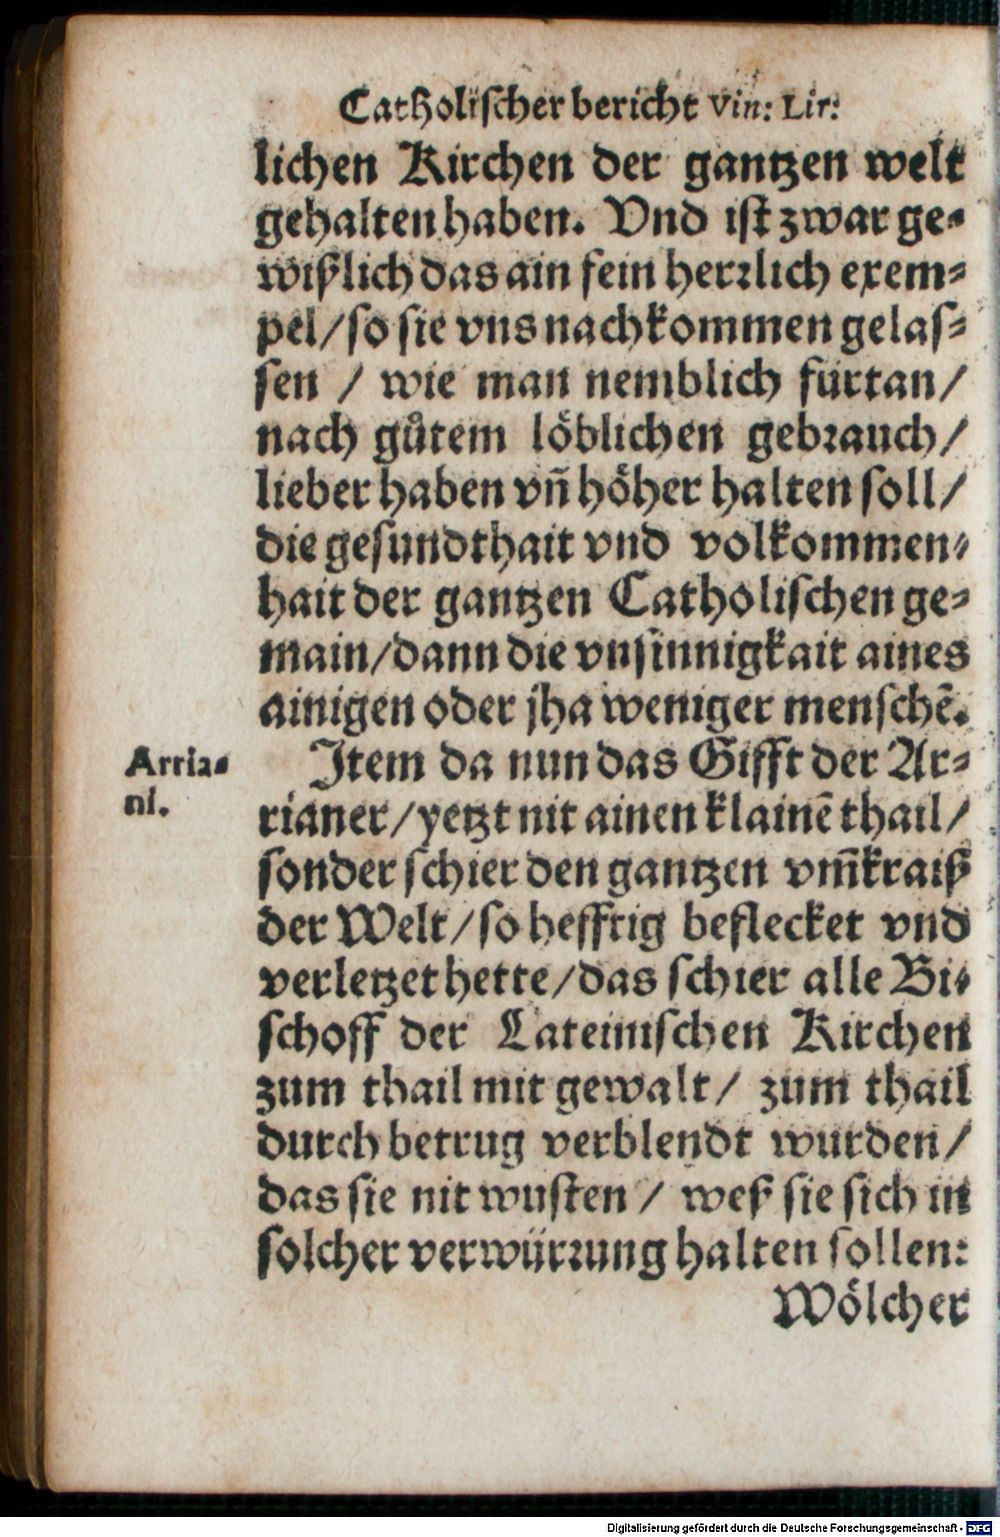 Catholischer bericht Vin: Lir:
lichen Kirchen der gantzen welt
gehalten haben. Vnd ist zwar ge-
wißlich das ain fein herrlich exem-
pel/ so sie vns nachkommen gelas-
sen / wie man nemblich fürtan/
nach gůtem löblichen gebrauch/
lieber haben vñ höher halten soll/
die gesundthait vnd volkommen-
hait der gantzen Catholischen ge-
main/dann die vnsinnigkait aines
ainigen oder jha weniger menschẽ.
Arria-
ni.
Item da nun das Gifft der Ar-
rianer/yetzt nit ainen klainẽ thail/
sonder schier den gantzen vm̃kraiß
der Welt/so hefftig beflecket vnd
verletzet hette/das schier alle Bi-
schoff der Lateinischen Kirchen
zum thail mit gewalt/ zum thail
durch betrug verblendt wurden/
das sie nit wusten / weß sie sich in
solcher verwürrung halten sollen:
Wölcher
Digitalisierung gefördert durch die Deutsche Forschungsgemeinschaft - DFG